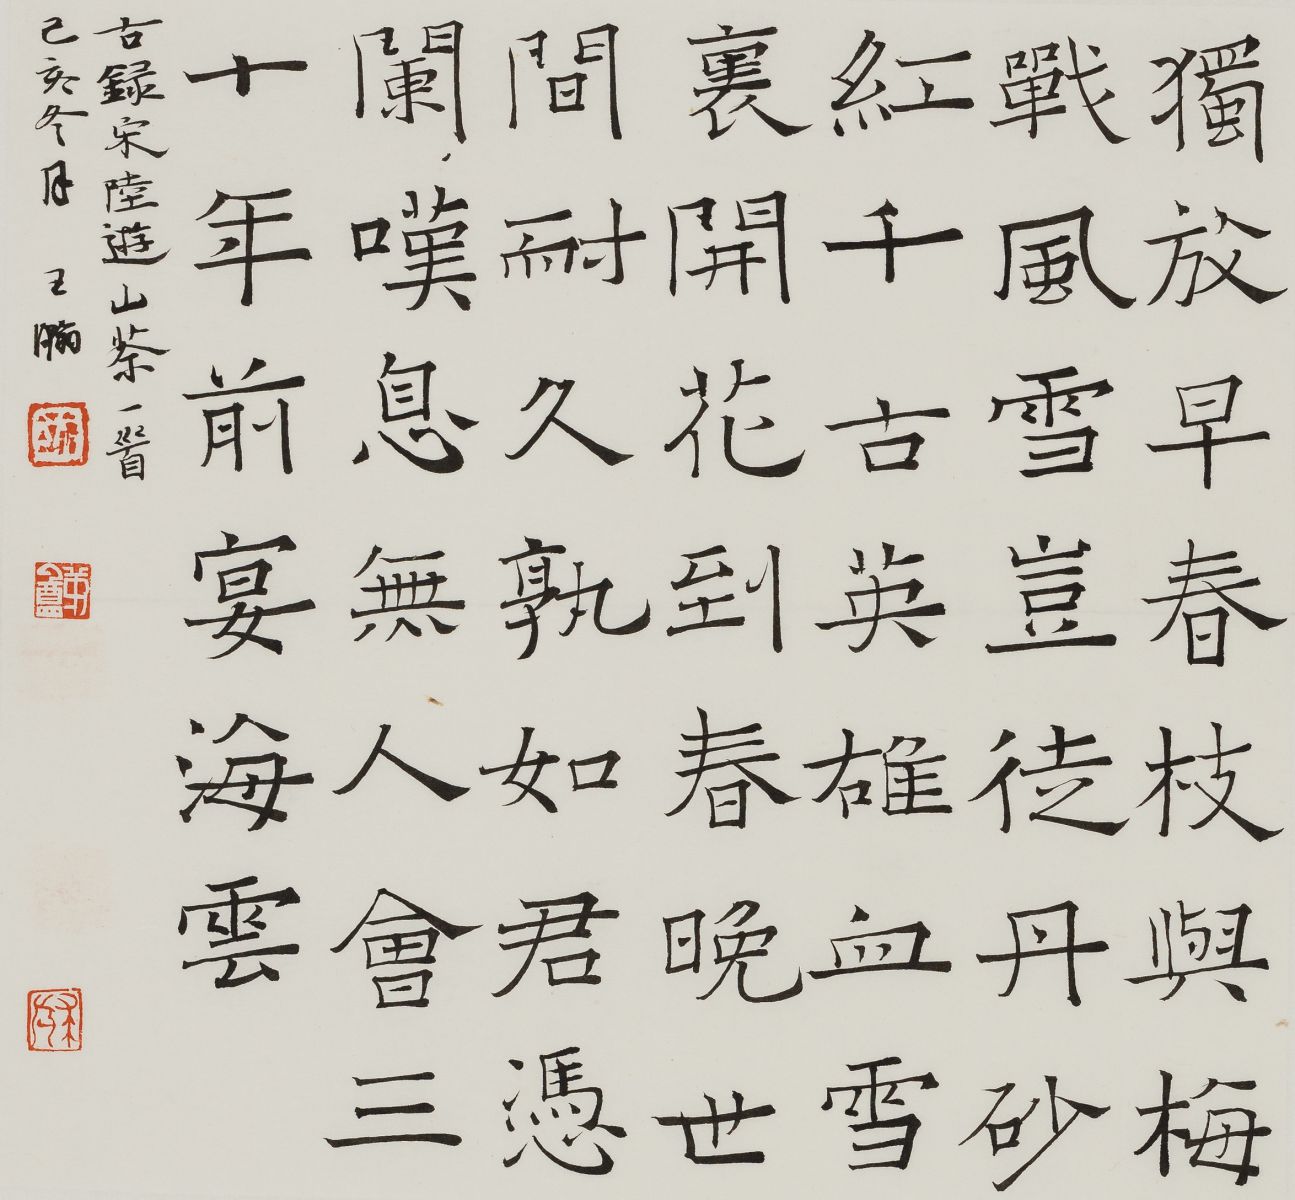 獨放早春枝與梅
戰風雪豈徒丹砂
紅千古英雄血雪
裏開花到春晚世
間耐久孰如君憑
闌嘆息無人會三
十年前宴海雲
古録宋陸遊山茶一首
己亥冬月 王鵬